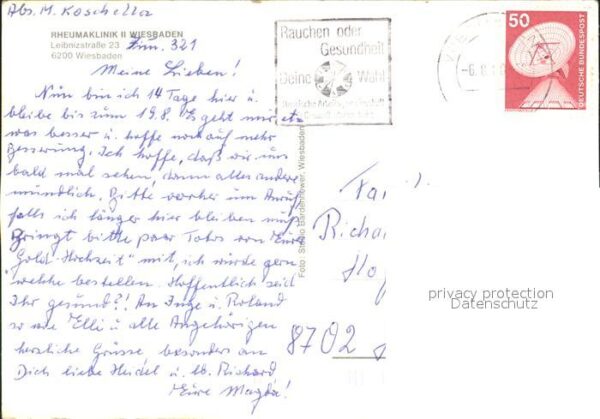 Abs. M. Koschella
RHEUMAKLINIK II WIESBADEN
Leibnizstraße 23
6200 Wiesbaden
Zim. 321
Meine Lieben!
Nun bin ich 14 Tage hier u.
bleibe bis zum 19.8. Es geht mir etwas
was besser u. hoffe noch auf mehr
Besserung. Ich hoffe, daß wir uns
bald mal sehen, dann alles andere
mündlich. Bitte vorher um Anruf
falls ich länger hier bleiben muß
Bringt bitte paar Fotos von Eure
"Gold-Hochzeit" mit, ich würde gern
welche bestellen. Hoffentlich seid
Ihr gesund?! An Inge u. Roland
so wie Elli u alle Angehörigen
herzliche Grüsse, besonders an
Dich liebe Heidel u. lb. Richard
Eure Magda!
Rauchen oder
Gesundheit
Deine Wahl
50
DEUTSCHE BUNDESPOST
Foto: Wiesbaden
Richa
8702
privacy protection
Datenschutz